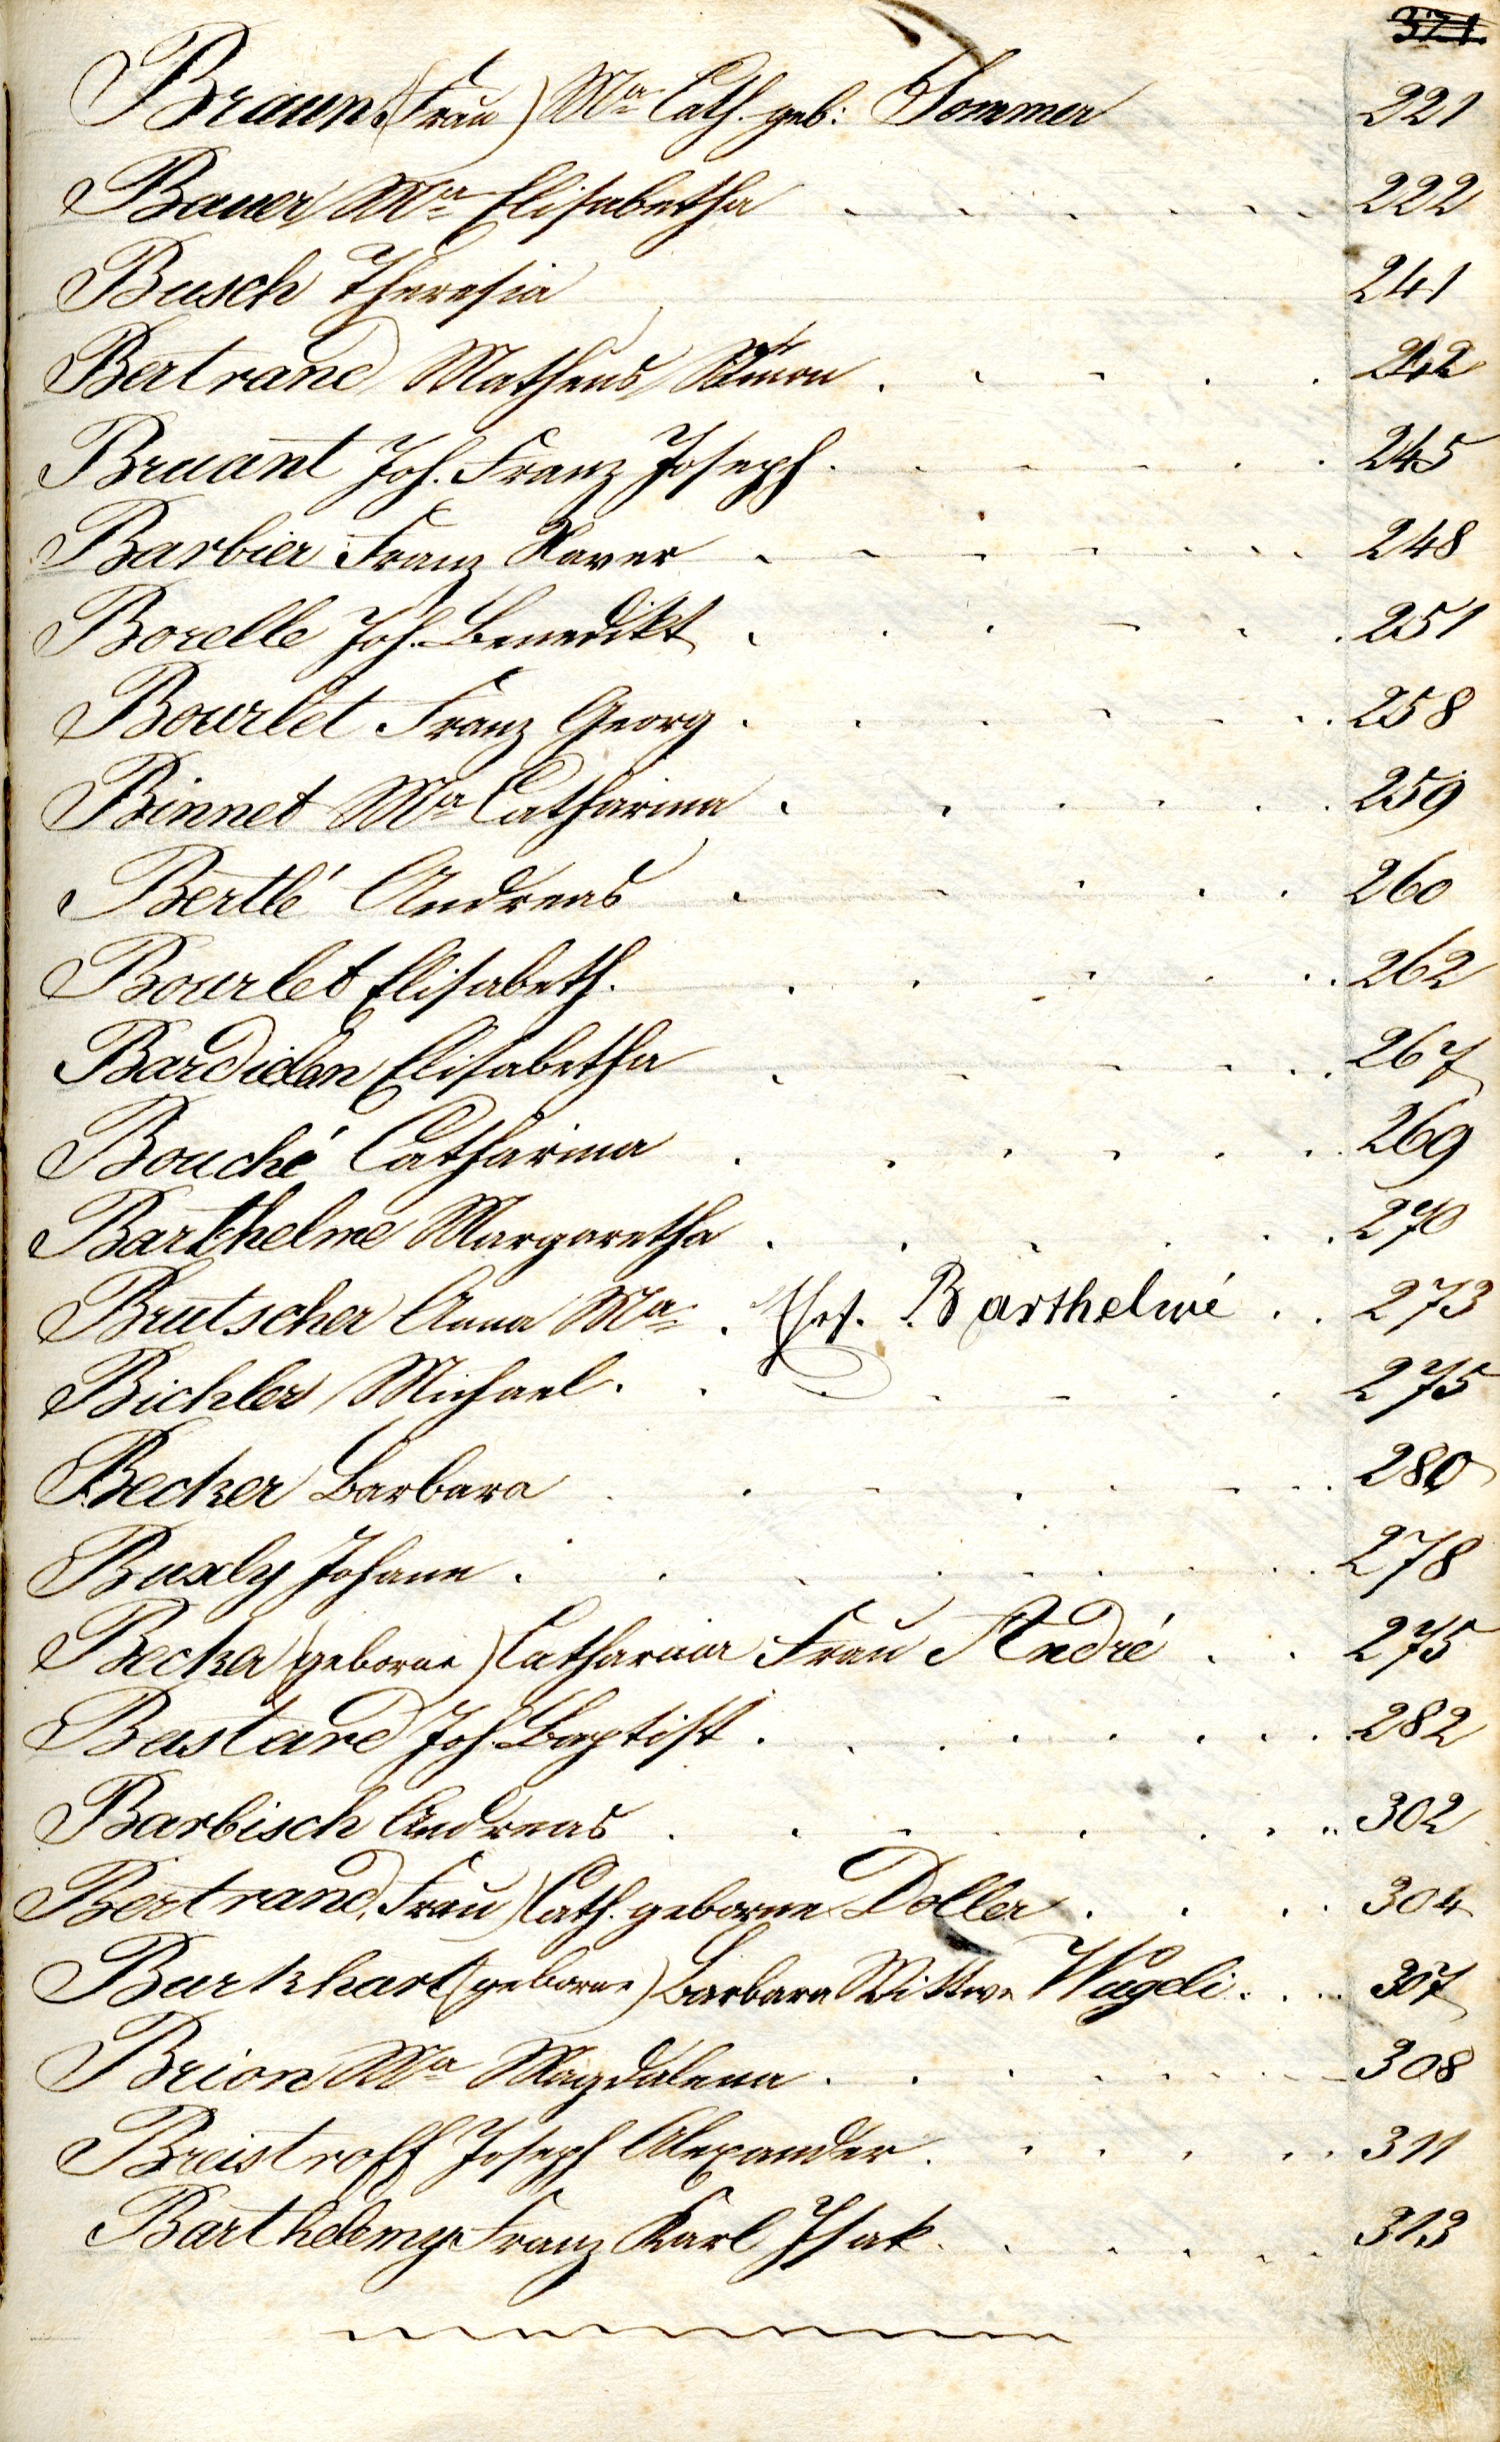 321.
Braun (Frau) Ma Cath. geb: Sommer 221
Bauer Ma Elisabetha 222
Busch Theresia 241
Bertrand Matheus Simon 242
Bruant Joh. Franz Joseph 245
Barbier Franz Xaver 248
Borelle Joh. Benedikt 251
Bourlet Franz Georg 258
Binnet Ma Catharina 259
Bertlé Andreas 260
Bourlet Elisabeth. 262
Bardidon Elisabetha 267
Bouché Catharina 269
Barthelme Margaretha 270
Brutscher Anna Ma. Barthelmé 273
Bichler Michael 275
Becker Barbara 280
Buxly Johann 278
Becker (geborne) Catharina Frau André 275
Bastard Joh. Baptist 282
Barbisch Andreas 302
Bertrand, Frau) Cath. geborne Doller 304
Burkhart (geborne) Barbara Wittwe Wugeli 307
Brion Ma Magdalena 308
Breistroff Joseph Alexander 311
Barthelemy Franz Karl Isak 313